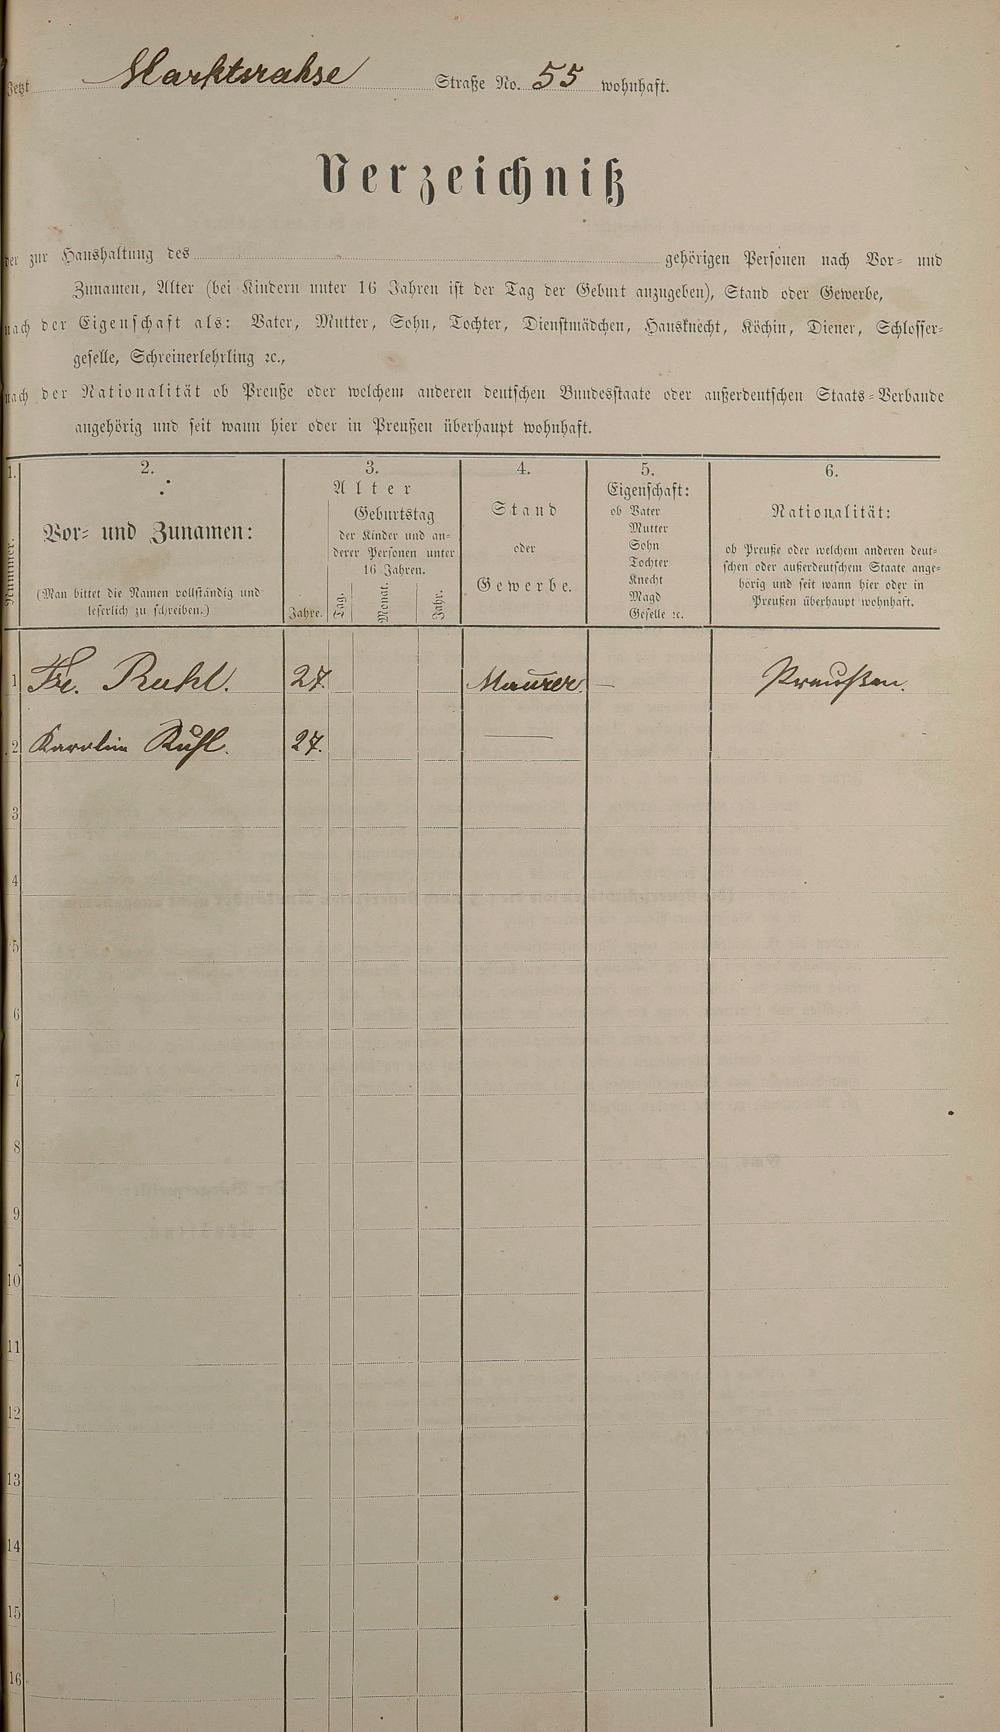 Jetzt Marktsrahse Straße No. 55 wohnhaft.
Verzeichniß
der zur Haushaltung des gehörigen Personen nach Vor- und
Zunamen, Alter (bei Kindern unter 16 Jahren ist der Tag der Geburt anzugeben), Stand oder Gewerbe,
nach der Eigenschaft als: Vater, Mutter, Sohn, Tochter, Dienstmädchen, Hausknecht, Köchin, Diener, Schlosser-
geselle, Schreinerlehrling ꝛc.,
nach der Nationalität ob Preuße oder welchem anderen deutschen Bundesstaate oder außerdeutschen Staats-Verbande
angehörig und seit wann hier oder in Preußen überhaupt wohnhaft.
1. 2. 3. 4. 5. 6.
Nummer.
Vor- und Zunamen:
(Man bittet die Namen vollständig und
leserlich zu schreiben.)
Alter
Jahre.
Geburtstag
der Kinder und an-
derer Personen unter
16 Jahren.
Tag. Monat. Jahr.
Stand
oder
Gewerbe.
Eigenschaft:
ob Vater
Mutter
Sohn
Tochter
Knecht
Magd
Geselle ꝛc.
Nationalität:
ob Preuße oder welchem anderen deut-
schen oder außerdeutschem Staate ange-
hörig und seit wann hier oder in
Preußen überhaupt wohnhaft.
1 Fre. Ruhl. 27. Maurer — Preußen.
2 Karolin Ruhl. 27. —
3
4
5
6
7
8
9
10
11
12
13
14
15
16